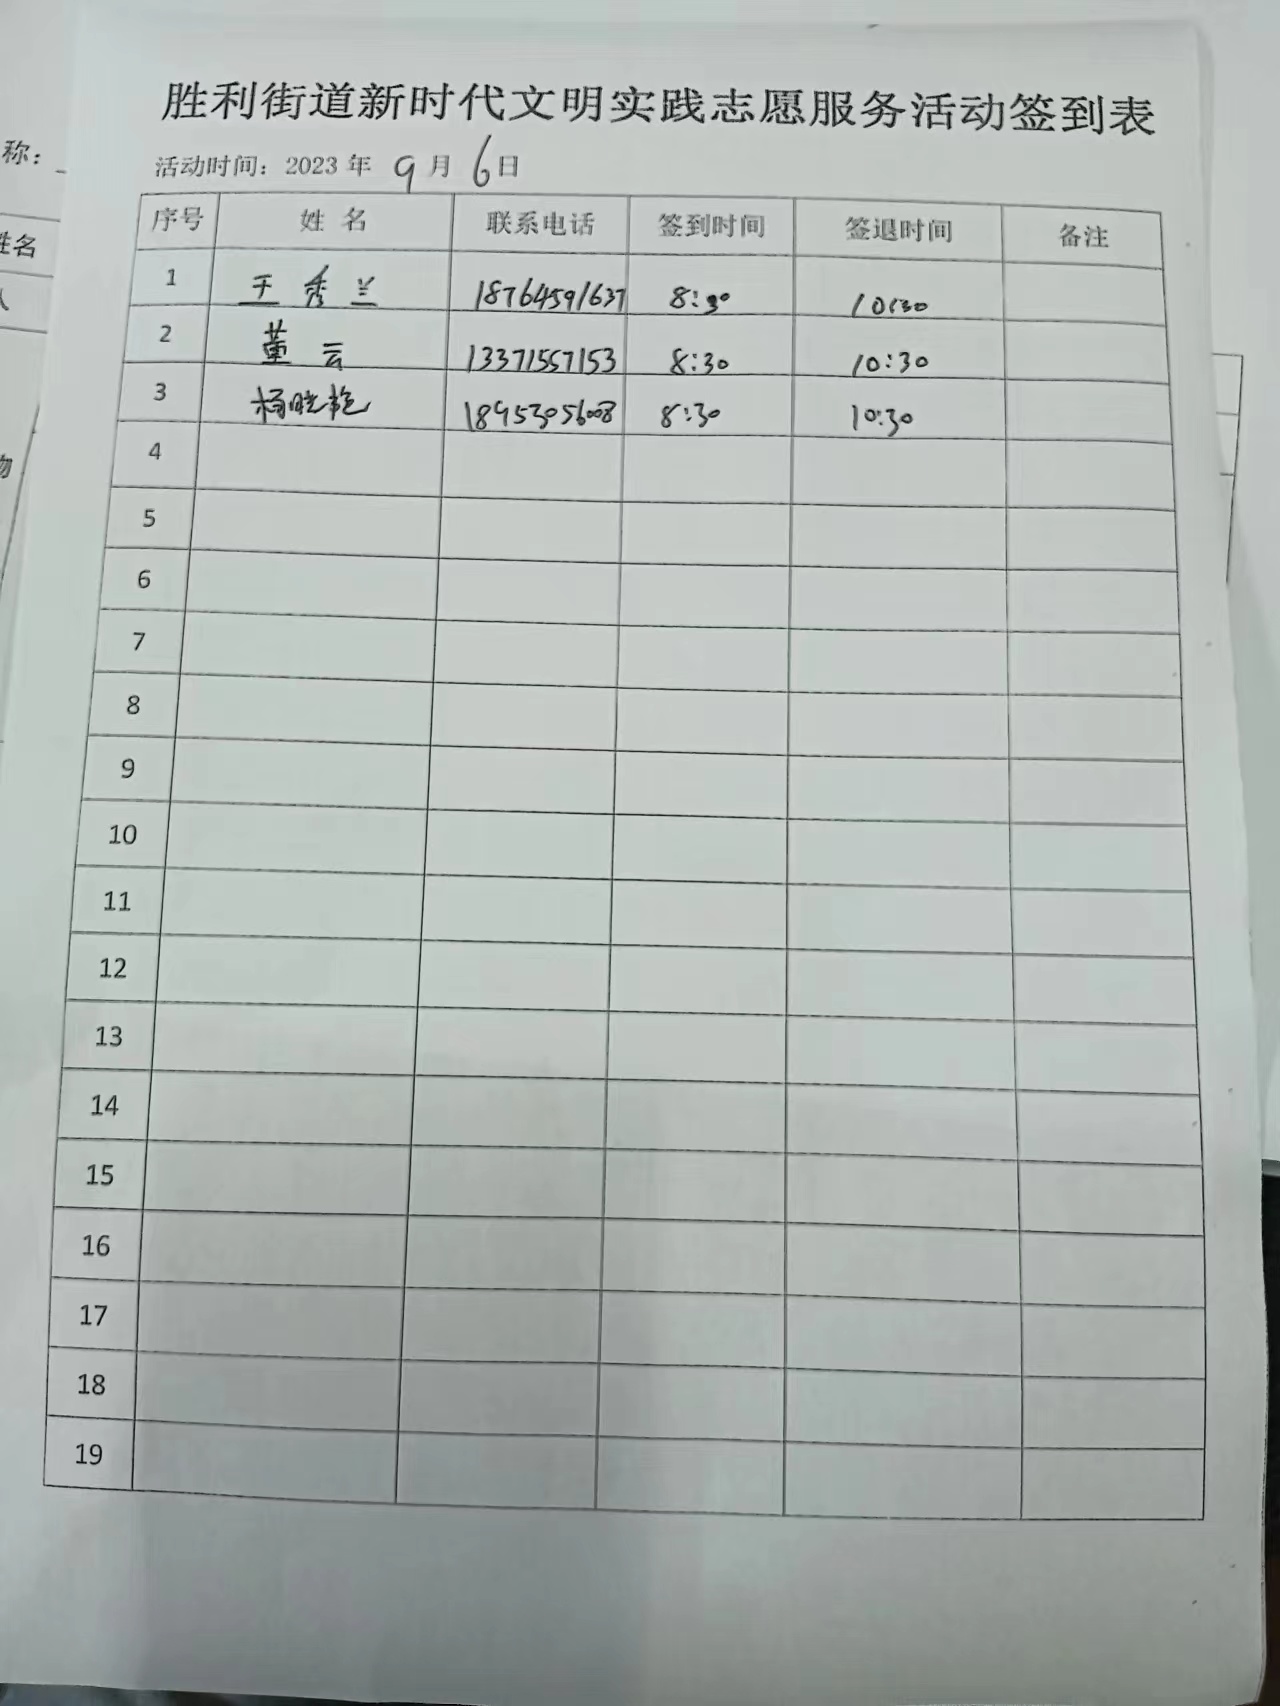 胜利街道新时代文明实践志愿服务活动签到表
称：
活动时间：2023 年 9 月 6 日
序号 姓 名 联系电话 签到时间 签退时间 备注
姓名
1 王秀兰 18764591637 8:30 10:30
人
2 董云 13371557153 8:30 10:30
3 杨晓艳 18953056008 8:30 10:30
4
物
5
6
7
8
9
10
11
12
13
14
15
16
17
18
19